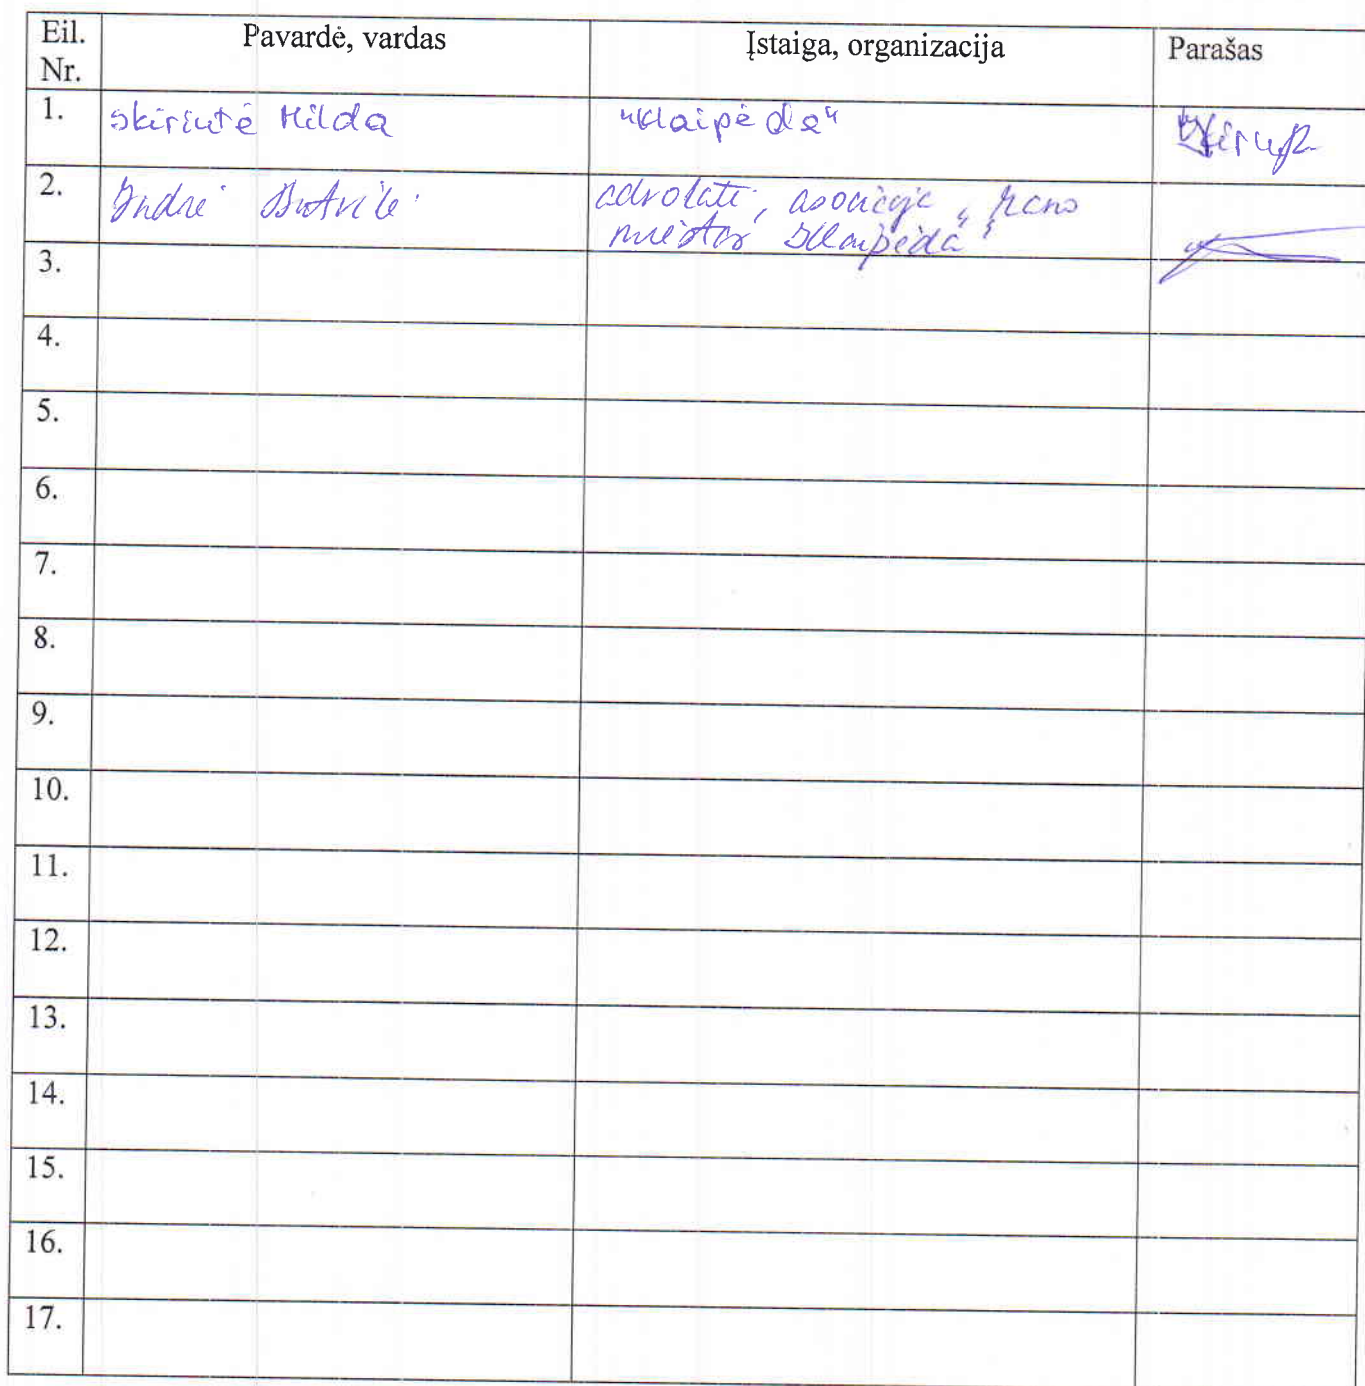 Eil. Nr. Pavardė, vardas Įstaiga, organizacija Parašas
1. Skiriutė Milda "Klaipėda"
2. Indrė Butvilė advokatė, asociacija „Mano
miestas Klaipėda"
3.
4.
5.
6.
7.
8.
9.
10.
11.
12.
13.
14.
15.
16.
17.